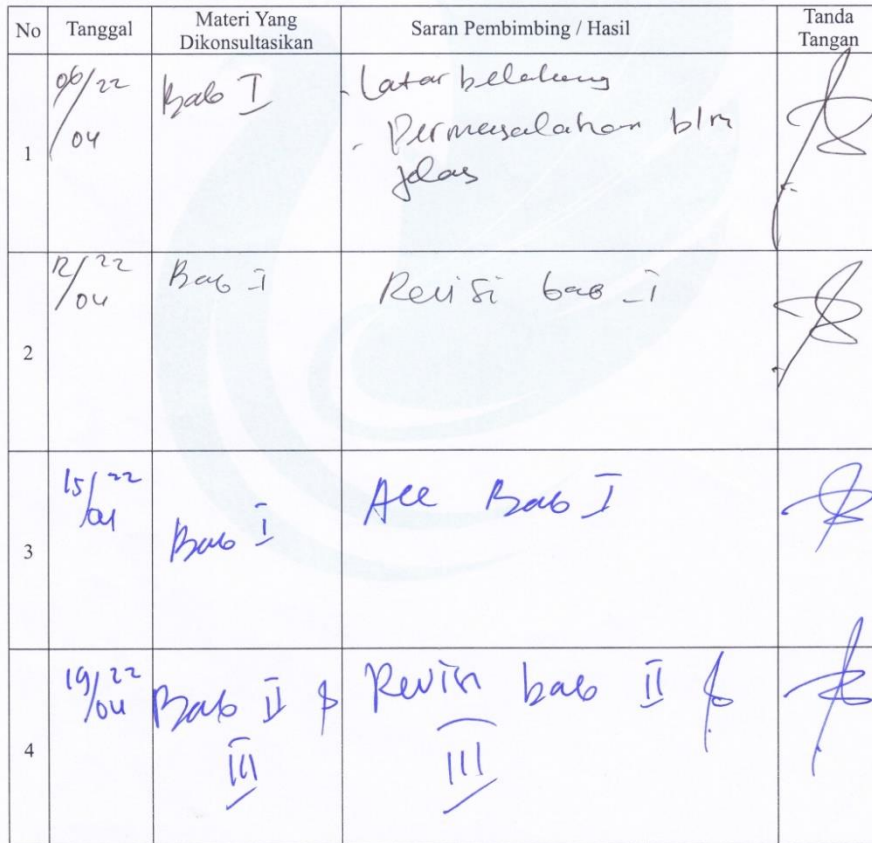 No Tanggal Materi Yang Dikonsultasikan Saran Pembimbing / Hasil Tanda Tangan
1 06/04 22 Bab I - Latar belakang
- Permasalahan blm
jelas
2 12/04 22 Bab I Revisi bab I
3 15/04 22 Bab I Acc Bab I
4 19/04 22 Bab II & Revisi bab II &
III III